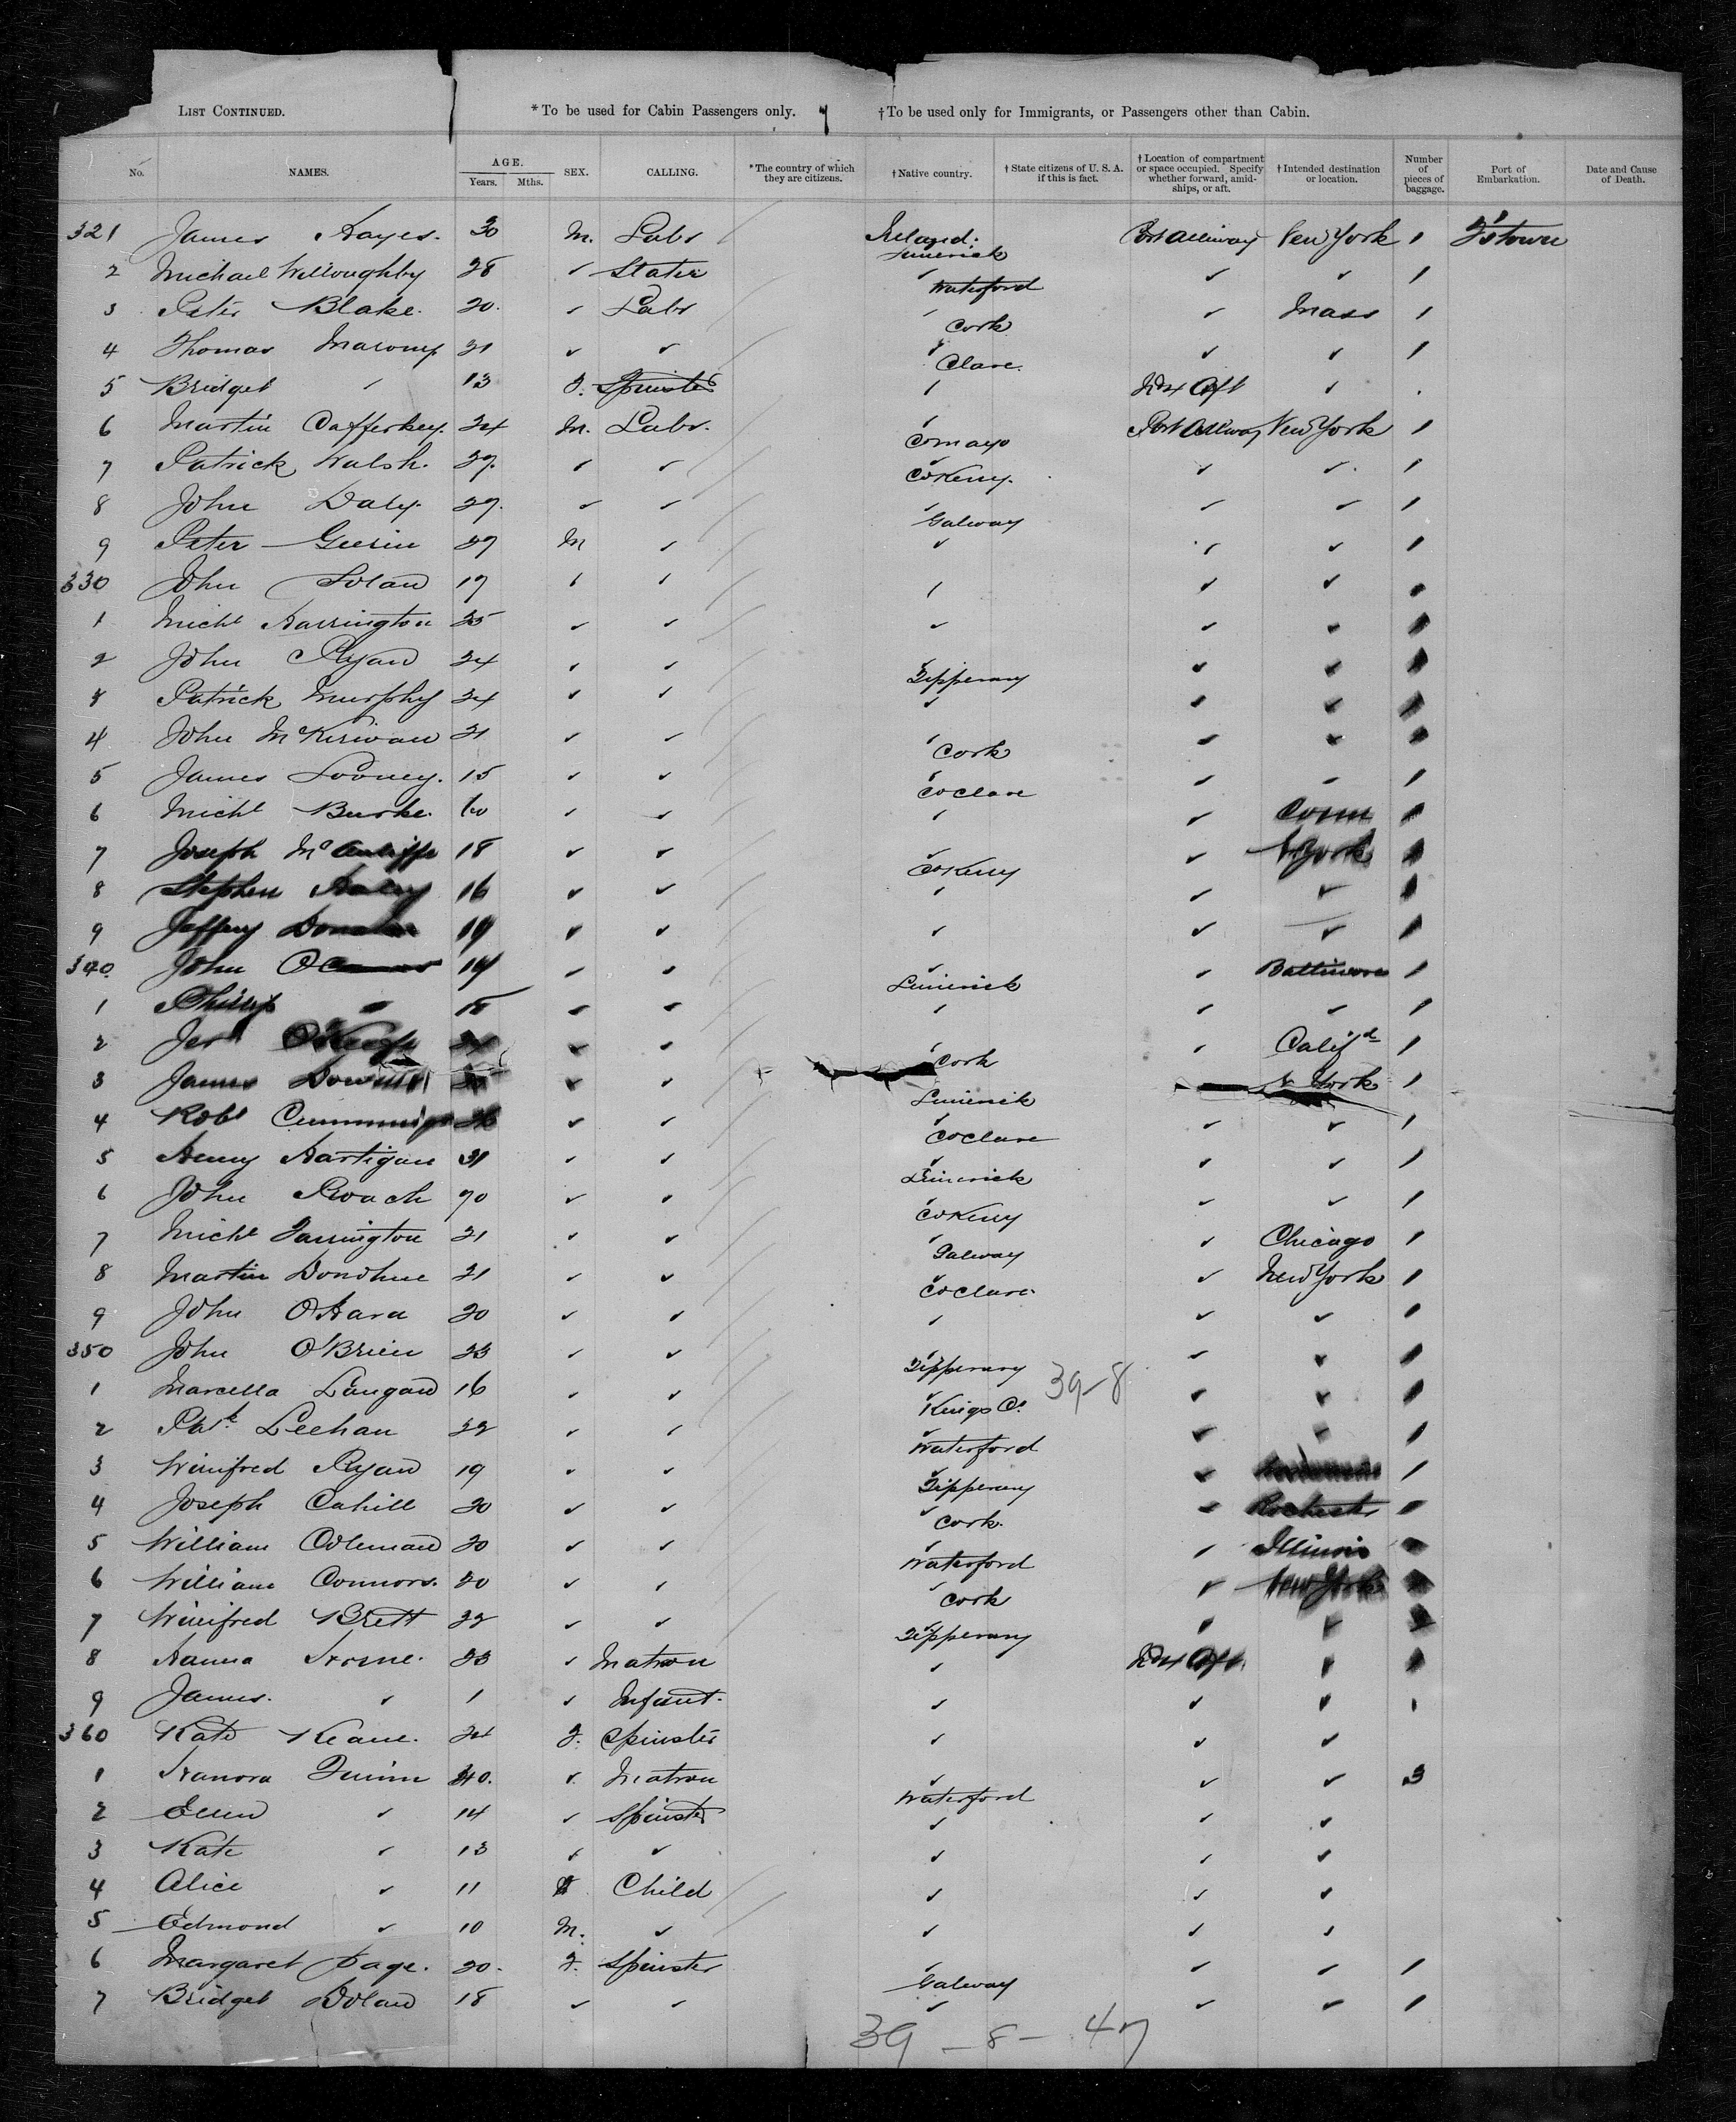 LIST CONTINUED. * To be used for Cabin Passengers only. † To be used only for Immigrants, or Passengers other than Cabin.
No. NAMES. AGE. Years. Mths. SEX. CALLING. * The country of which they are citizens. † Native country. † State citizens of U. S. A. if this is fact. † Location of compartment or space occupied. Specify whether forward, amidships, or aft. † Intended destination or location. Number of pieces of baggage. Port of Embarkation. Date and Cause of Death.
321 James Hayes. 30 M. Labr Ireland: Limerick Port Alliway New York 1 Q'stown
2 Michael Willoughby 28 ✓ Slater ✓ Waterford ✓ ✓ 1
3 Peter Blake. 20. ✓ Labr ✓ Cork ✓ Mass 1
4 Thomas 21 ✓ ✓ ✓ Clare. ✓ ✓ 1
5 Bridget ✓ 13 F. Spinster ✓ Aft ✓
6 Martin Cafferkey. 24 M. Labr. ✓ Co Mayo Port Alliway New York 1
7 Patrick Walsh. 27. ✓ ✓ ✓ Co Kerry. ✓ ✓ 1
8 John Daly. 27. ✓ ✓ ✓ Galway ✓ ✓ 1
9 Peter Guerin 27 M ✓ ✓ ✓ ✓ 1
330 John Solan 17 ✓ ✓ ✓ ✓ ✓ 1
1 Michl Harrington 25 ✓ ✓ ✓ ✓ ✓ 1
2 John Ryan 24 ✓ ✓ ✓ Tipperary ✓ ✓ 1
3 Patrick Murphy 24 ✓ ✓ ✓ ✓ ✓ 1
4 John McKirwan 21 ✓ ✓ ✓ Cork ✓ ✓ 1
5 James Looney. 15 ✓ ✓ ✓ Co Clare ✓ ✓ 1
6 Michl Burke. ✓ ✓ ✓ ✓ Conn 1
7 Joseph McAuliffe 18 ✓ ✓ ✓ Co Kerry ✓ N York 1
8 Stephen 16 ✓ ✓ ✓ ✓ ✓ 1
9 Jeffery 19 ✓ ✓ ✓ ✓ ✓ 1
340 John 19 ✓ ✓ ✓ Limerick ✓ Baltimore 1
1 Phillip ✓ ✓ ✓ ✓ ✓ ✓ 1
2 Jer O'Keefe ✓ ✓ ✓ Cork ✓ Calif 1
3 James ✓ ✓ Limerick N York 1
4 Robt Cummings 26 ✓ ✓ ✓ Co Clare ✓ ✓ 1
5 Henry Hartigan 21 ✓ ✓ ✓ Limerick ✓ ✓ 1
6 John Roach 20 ✓ ✓ ✓ Co Kerry ✓ ✓ 1
7 Michl Farrington 21 ✓ ✓ ✓ Galway ✓ Chicago 1
8 Martin Donohue 21 ✓ ✓ ✓ Co Clare. ✓ New York 1
9 John O'Hara 20 ✓ ✓ ✓ ✓ ✓ 1
350 John O'Brien 23 ✓ ✓ ✓ Tipperary ✓ ✓ 1
39-8
1 Marcella Langan 16 ✓ ✓ ✓ Kings Co. ✓ ✓ 1
2 Patk Leehan 22 ✓ ✓ ✓ Waterford ✓ ✓ 1
3 Winifred Ryan 19 ✓ ✓ ✓ Tipperary ✓ 1
4 Joseph Cahill 20 ✓ ✓ ✓ Cork. ✓ Rochester 1
5 William Coleman 20 ✓ ✓ ✓ Waterford ✓ Illinois
6 William Connors. 20 ✓ ✓ ✓ Cork ✓ New York
7 Winifred Brett 22 ✓ ✓ ✓ Tipperary ✓ ✓
8 Hanna 23 ✓ Matron ✓ Aft. ✓ 1
9 James. ✓ 1 ✓ Infant. ✓ ✓ ✓ 1
360 Kate Keane. 24 F. Spinster ✓ ✓ ✓
1 Hanora Quinn 40. ✓ Matron ✓ Waterford ✓ ✓ 3
2 Ellen ✓ 14 ✓ Spinster ✓ ✓ ✓
3 Kate ✓ 13 ✓ ✓ ✓ ✓ ✓
4 Alice ✓ 11 Child ✓ ✓ ✓
5 Edmond ✓ 10 M. ✓ ✓ ✓ ✓
6 Margaret Page. 20. F. Spinster ✓ Galway ✓ ✓ 1
7 Bridget Dolan 18 ✓ ✓ ✓ ✓ ✓ 1
39 - 8 - 47